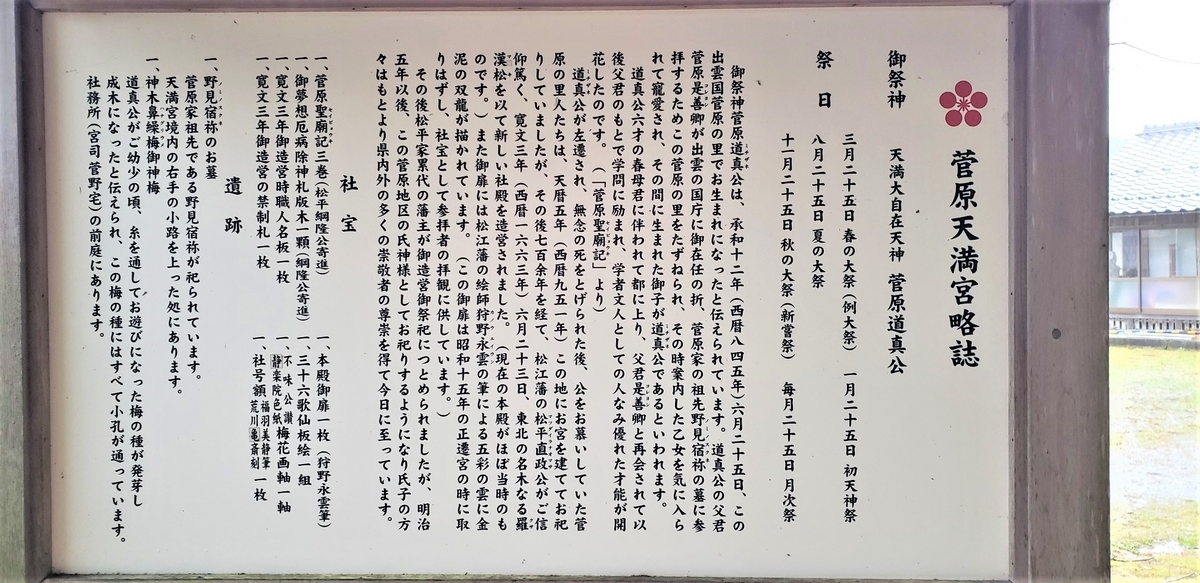 菅原天満宮略誌
御祭神　天満大自在天神　菅原道真公
祭　日
三月二十五日 春の大祭（例大祭）　一月二十五日 初天神祭
八月二十五日 夏の大祭
十一月二十五日 秋の大祭（新嘗祭）　毎月二十五日 月次祭
御祭神菅原道真公は、承和十二年（西暦八四五年）六月二十五日、この
出雲国菅原の里でお生まれになったと伝えられています。道真公の父君
菅原是善卿が出雲の国庁に御在任の折、菅原家の祖先野見宿祢の墓に参
拝するためこの菅原の里をたずねられ、その時案内した乙女を気に入ら
れて寵愛され、その間に生まれた御子が道真公であるといわれます。
道真公六才の春母君に伴われて都に上り、父君是善卿と再会されて以
後父君のもとで学問に励まれ、学者文人としての人なみ優れた才能が開
花したのです。（「菅原聖廟記」より）
道真公が左遷され、無念の死をとげられた後、公をお慕いしていた菅
原の里人たちは、天暦五年（西暦九五一年）この地にお宮を建ててお祀
りしていましたが、その後七百余年を経て、松江藩の松平直政公がご信
仰篤く、寛文三年（西暦一六六三年）六月二十三日、東北の名木なる羅
漢松を以て新しい社殿を造営されました。（現在の本殿がほぼ当時のも
のです。）また御扉には松江藩の絵師狩野永雲の筆による五彩の雲に金
泥の双龍が描かれています。（この御扉は昭和十五年の正遷宮の時に取
りはずし、社宝として参拝者の拝観に供しています。）
その後松平家累代の藩主が御造営御祭祀につとめられましたが、明治
五年以後、この菅原地区の氏神様としてお祀りするようになり氏子の方
々はもとより県内外の多くの崇敬者の尊崇を得て今日に至っています。
社　宝
一、菅原聖廟記三巻（松平綱隆公寄進）
一、御夢想厄病除神札版木一顆（綱隆公寄進）
一、寛文三年御造営時職人名板一枚
一、寛文三年御造営の禁制札一枚
一、本殿御扉一枚（狩野永雲筆）
一、三十六歌仙板絵一組
一、不味公讃静楽院色紙梅花画軸一軸
一、社号額福羽美静筆荒川亀斎刻一枚
遺　跡
一、野見宿祢のお墓
菅原家祖先である野見宿祢が祀られています。
天満宮境内の右手の小路を上った処にあります。
一、神木鼻繰梅御神梅
道真公がご幼少の頃、糸を通してお遊びになった梅の種が発芽し
成木になったと伝えられ、この梅の種にはすべて小孔が通っています。
社務所（宮司菅野宅）の前庭にあります。